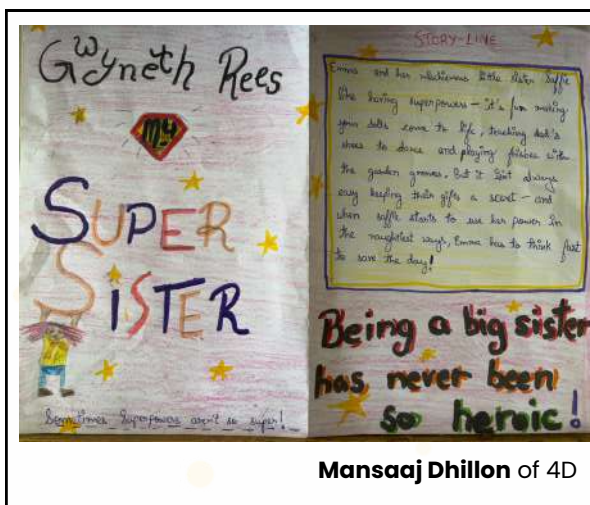 Gwyneth Rees
My
SUPER
SISTER
Sometimes Superpowers aren't so super!
STORY-LINE
Emma and her mischievous little sister Saffie
like having superpowers - it's fun making
your dolls come to life, teaching dad's
shoes to dance and playing frisbee with
the garden gnomes. But it isn't always
easy keeping their gifts a secret - and
when saffie starts to use her power in
the naughtiest ways, Emma has to think fast
to save the day!
Being a big sister
has never been
so heroic!
Mansaaj Dhillon of 4D